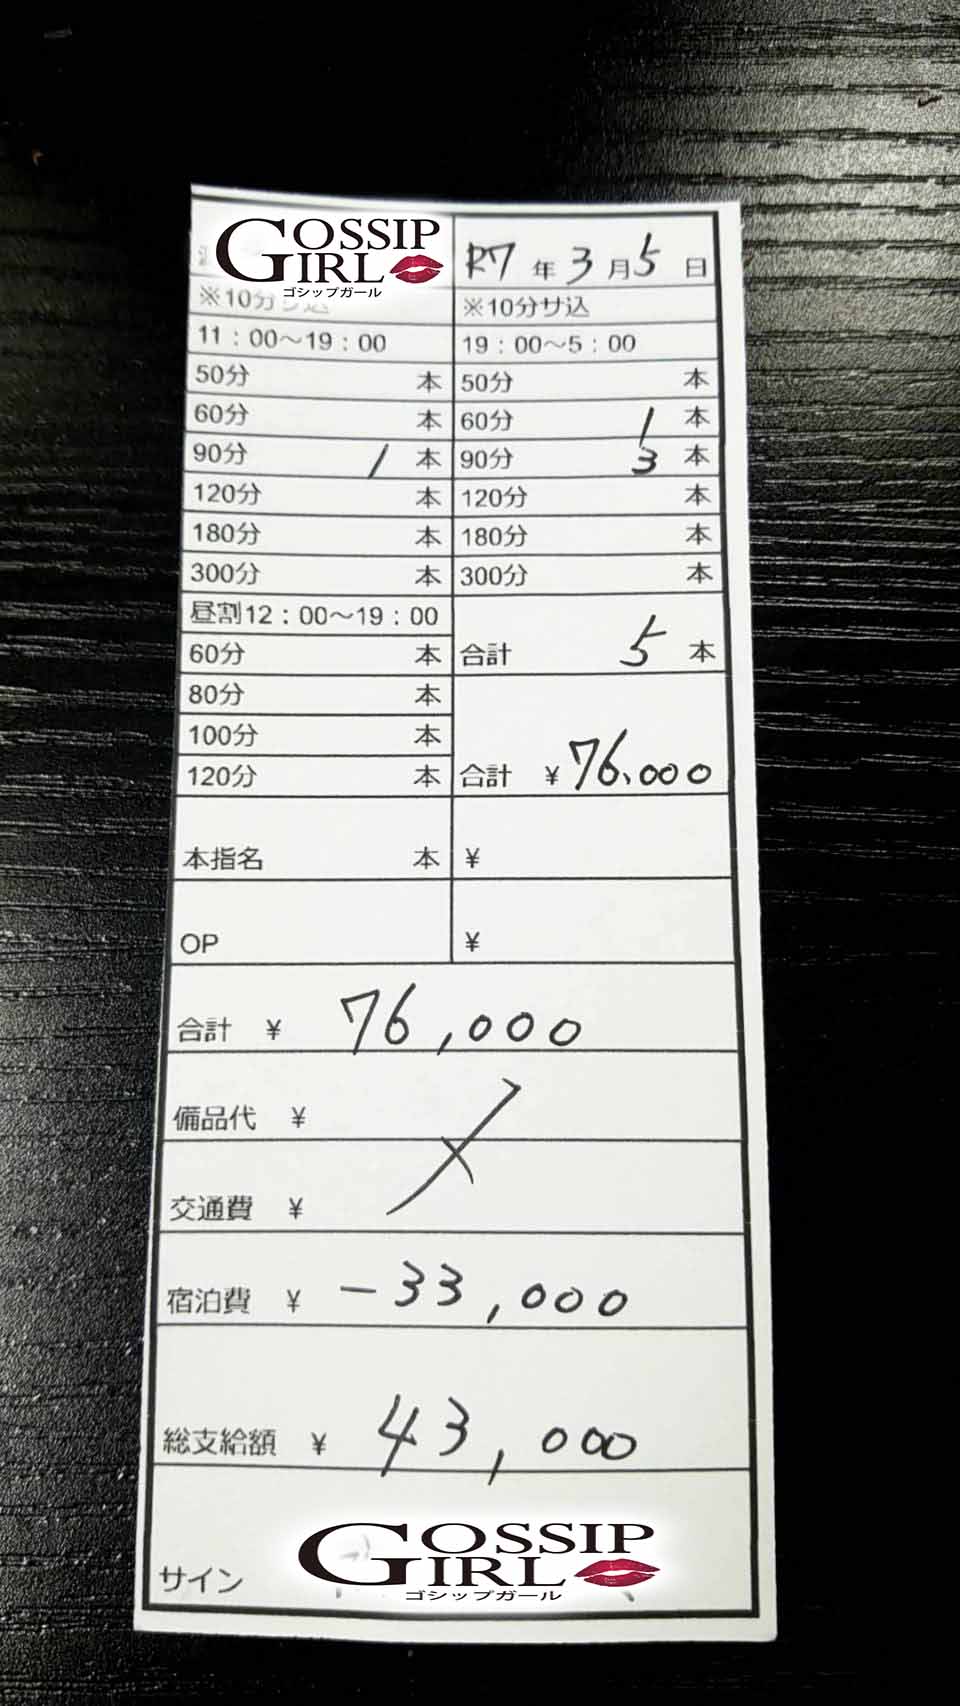 GOSSIP GIRL
ゴシップガール
R7 年 3 月 5 日
※10分サ込
※10分サ込
11：00～19：00
19：00～5：00
50分 本
50分 本
60分 本
60分 1 本
90分 1 本
90分 3 本
120分 本
120分 本
180分 本
180分 本
300分 本
300分 本
昼割12：00～19：00
60分 本
合計 5 本
80分 本
100分 本
120分 本
合計 ¥76,000
本指名 本 ¥
OP ¥
合計 ¥ 76,000
備品代 ¥
交通費 ¥
宿泊費 ¥ -33,000
総支給額 ¥ 43,000
サイン
GOSSIP GIRL
ゴシップガール